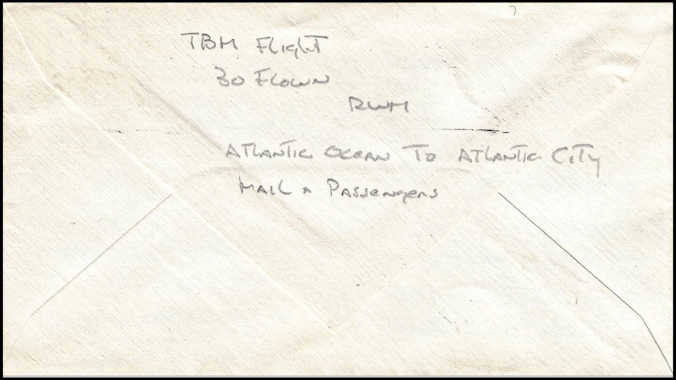 TBM Flight
30 Flown
RWM
Atlantic Ocean to Atlantic City
Mail & Passengers